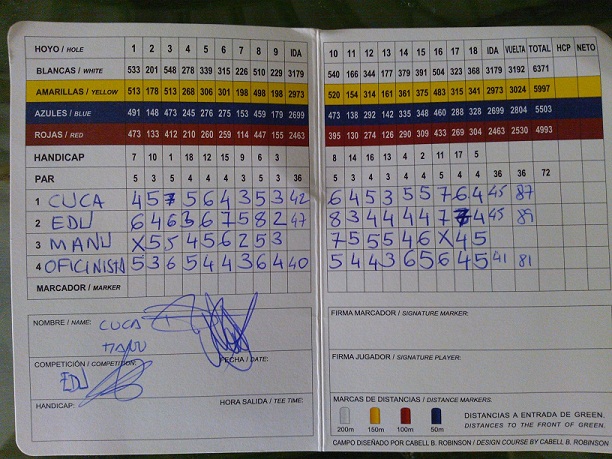 HOYO / HOLE 1 2 3 4 5 6 7 8 9 IDA 10 11 12 13 14 15 16 17 18 IDA VUELTA TOTAL HCP NETO
BLANCAS / WHITE 533 201 548 278 339 315 226 510 229 3179 540 166 344 177 379 391 504 323 368 3179 3192 6371
AMARILLAS / YELLOW 513 178 513 268 306 301 198 498 198 2973 520 154 314 161 361 375 483 315 341 2973 3024 5997
AZULES / BLUE 491 148 473 245 276 275 153 459 179 2699 473 138 292 142 335 348 460 288 328 2699 2804 5503
ROJAS / RED 473 133 412 210 260 259 114 447 155 2463 395 130 274 126 290 309 433 269 304 2463 2530 4993
HANDICAP 7 10 1 18 12 15 9 6 3 8 14 16 13 4 2 11 17 5
PAR 5 3 5 4 4 4 3 5 3 36 5 3 4 3 4 4 5 4 4 36 36 72
1 CUCA 4 5 7 5 6 4 3 5 3 42 6 4 5 3 5 5 7 6 4 45 87
2 EDU 6 4 6 3 6 7 5 8 2 47 8 3 4 4 4 4 7 7 4 45 89
3 MANU X 5 5 4 5 6 2 5 3 7 5 5 5 4 6 X 4 5
4 OFICINISTA 5 3 6 5 4 4 3 6 4 40 5 4 4 3 6 5 6 4 5 41 81
MARCADOR / MARKER
NOMBRE / NAME: CUCA
MANU
COMPETICIÓN / COMPETITION: FECHA / DATE:
EDU
HANDICAP: HORA SALIDA / TEE TIME:
FIRMA MARCADOR / SIGNATURE MARKER:
FIRMA JUGADOR / SIGNATURE PLAYER:
MARCAS DE DISTANCIAS / DISTANCE MARKERS.
200m 150m 100m 50m
DISTANCIAS A ENTRADA DE GREEN.
DISTANCES TO THE FRONT OF GREEN.
CAMPO DISEÑADO POR CABELL B. ROBINSON / DESIGN COURSE BY CABELL B. ROBINSON